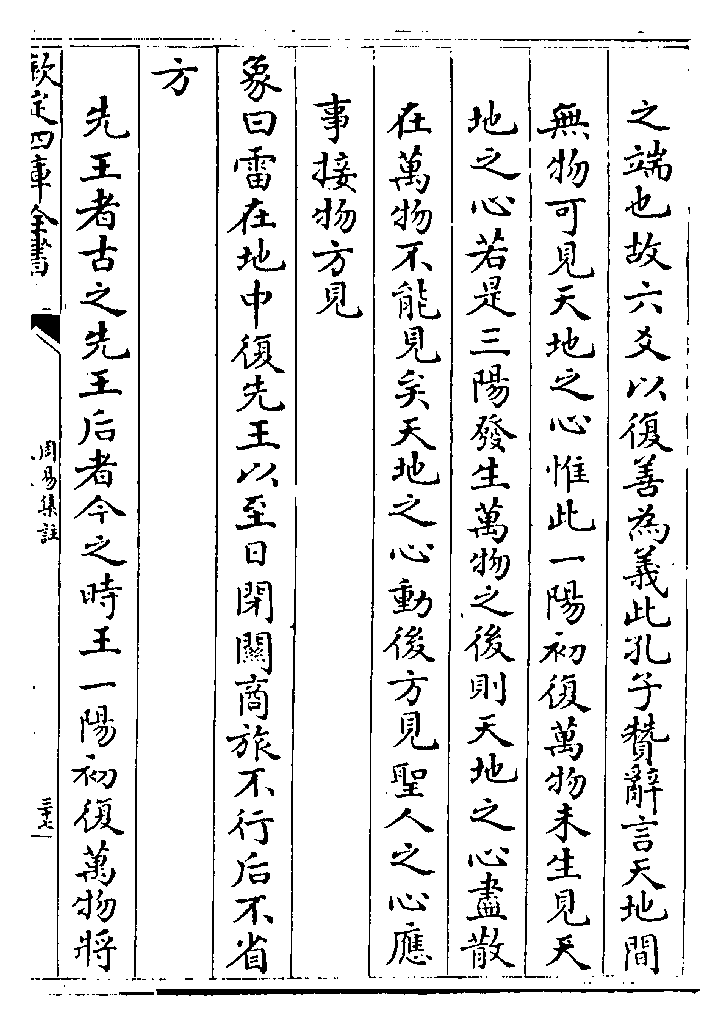 之端也故六爻以復善為義此孔子贊辭言天地間
無物可見天地之心惟此一陽初復萬物未生見天
地之心若是三陽發生萬物之後則天地之心盡散
在萬物不能見矣天地之心動後方見聖人之心應
事接物方見
象曰雷在地中復先王以至日閉關商旅不行后不省
方
先王者古之先王后者今之時王一陽初復萬物將
欽定四庫全書
周易集註
三十七